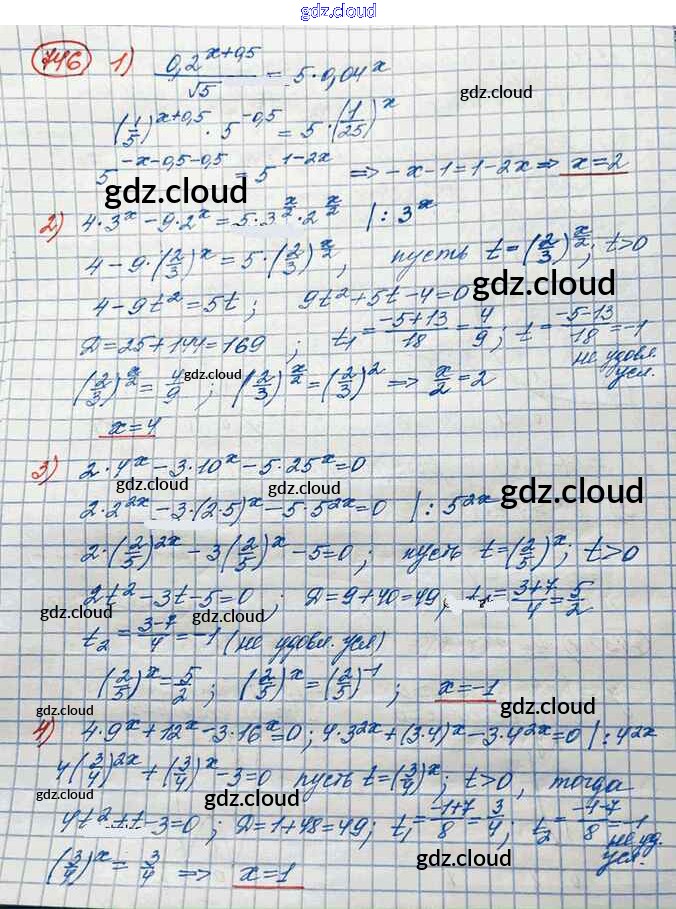 gdz.cloud
gdz.cloud
746 1) 0,2^(x+0,5)/√5 = 5·0,04^x
gdz.cloud
(1/5)^(x+0,5) · 5^(-0,5) = 5·(1/25)^x
gdz.cloud
5^(-x-0,5-0,5) = 5^(1-2x) => -x-1=1-2x => x=2
gdz.cloud
gdz.cloud
2) 4·3^x - 9·2^x = 5·3^(x/2)·2^(x/2) |:3^x
4-9·(2/3)^x = 5·(2/3)^(x/2), пусть t=(2/3)^(x/2); t>0
gdz.cloud
gdz.cloud
4-9t²=5t; 9t²+5t-4=0
Д=25+144=169; t₁=(-5+13)/18=4/9; t=(-5-13)/18=-1
не удовл. усл.
gdz.cloud
(2/3)^(x/2)=4/9; (2/3)^(x/2)=(2/3)^2 => x/2=2
gdz.cloud
x=4
3) 2·4^x-3·10^x-5·25^x=0
gdz.cloud
gdz.cloud
gdz.cloud
2·2^(2x)-3·(2·5)^x-5·5^(2x)=0 |:5^(2x)
2·(2/5)^(2x)-3(2/5)^x-5=0; пусть t=(2/5)^x; t>0
gdz.cloud
2t²-3t-5=0; Д=9+40=49, t₁=(3+7)/4=5/2
gdz.cloud
gdz.cloud
t₂=(3-7)/4=-1 (не удовл. усл)
(2/5)^x=5/2; (2/5)^x=(2/5)^(-1); x=-1
gdz.cloud
gdz.cloud
4) 4·9^x+12^x-3·16^x=0; 4·3^(2x)+(3·4)^x-3·4^(2x)=0 |:4^(2x)
4(3/4)^(2x)+(3/4)^x-3=0 пусть t=(3/4)^x; t>0, тогда
gdz.cloud
gdz.cloud
4t²+t-3=0; Д=1+48=49; t₁=(-1+7)/8=3/4; t₂=(-1-7)/8=-1
не уд. усл.
gdz.cloud
(3/4)^x=3/4 => x=1
gdz.cloud